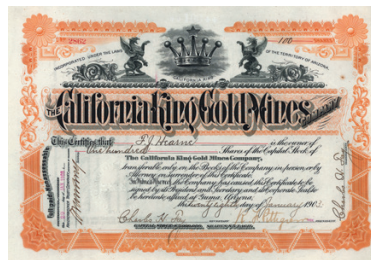 No 2862
100
INCORPORATED UNDER THE LAWS
OF THE TERRITORY OF ARIZONA.
CALIFORNIA KING
THE California King Gold Mines
This Certifies that F. J. Hearne is the owner of
One hundred Shares of the Capital Stock of
The California King Gold Mines Company,
transferable only on the Books of the Company, in person, or by
Attorney on surrender of this Certificate.
In Witness Whereof, the Company has caused this Certificate to be
signed by its President and Secretary and its Corporate Seal to
be hereunto affixed at Yuma, Arizona,
this twenty eighth day of January 190
Charles H.